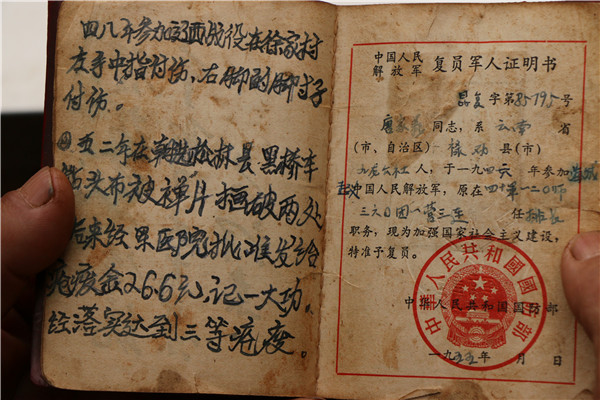 四八年参加辽西战役在徐家村
左手中指付伤,右脚 脚子
付伤。
五二年在朝 松林县黑桥车
站头布被禅片 破两处
后来经 医院批准发给
疮废金266元,记一大功。
经落实达到三等疮废。
中国人民
解放军 复员军人证明书
昆复字第85795号
同志,系 云南 省
(市、自治区) 禄劝 县(市)
人,于一九四六年参加
中国人民解放军,原在 四十军一二0师
三六0团一营三连 任 排长
职务,现为加强国家社会主义建设,
特准予复员。
中华人民共和国国防部
一九五五年 月 日
中華人民共和國國防部